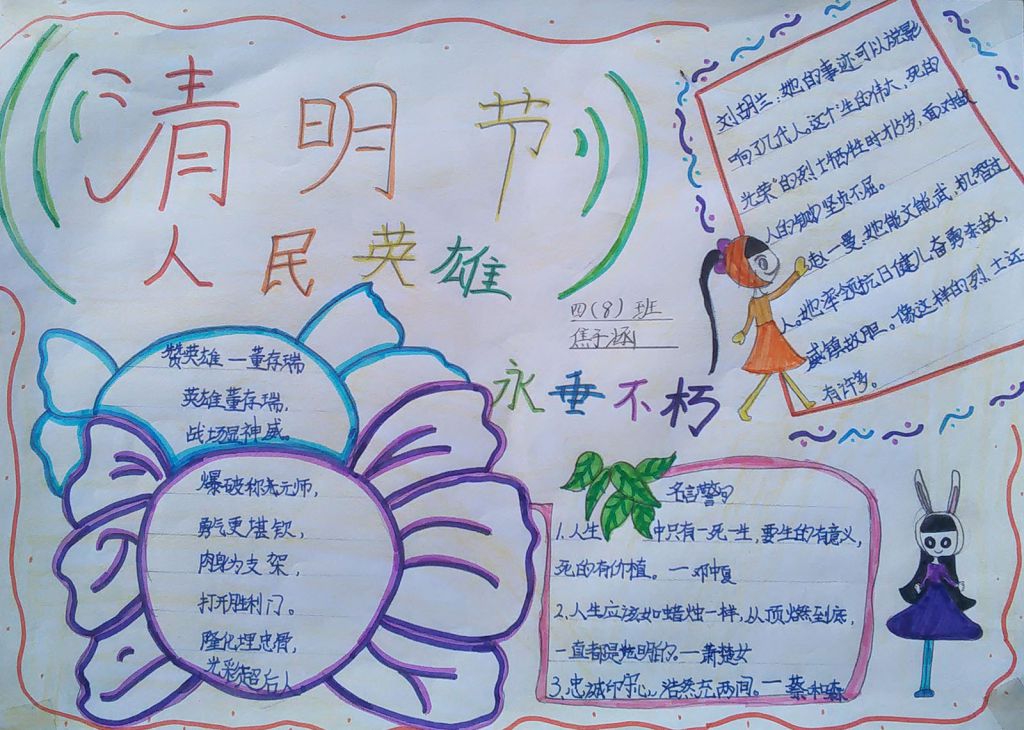 清明节
人民英雄
永垂不朽
四(8)班
焦子涵
赞英雄 一董存瑞
英雄董存瑞,
战场显神威。
爆破称元师,
勇气更堪钦,
肉身为支架,
打开胜利门。
隆化埋忠骨,
光彩照后人
刘胡兰:她的事迹可以说影
响了几代人。这个"生的伟大、死的
光荣"的烈士牺牲时才15岁,面对敌
人的铡刀坚贞不屈。
赵一曼:她能文能武,机智过
人。她率领抗日健儿奋勇杀敌,
威镇敌胆。像这样的烈士还
有许多。
名言警句
1.人生 中只有一死一生,要生的有意义,
死的有价值。一邓中夏
2.人生应该如蜡烛一样,从顶燃到底,
一直都是光明的。一萧楚女
3.忠诚印寸心,浩然充两间。一蔡和森